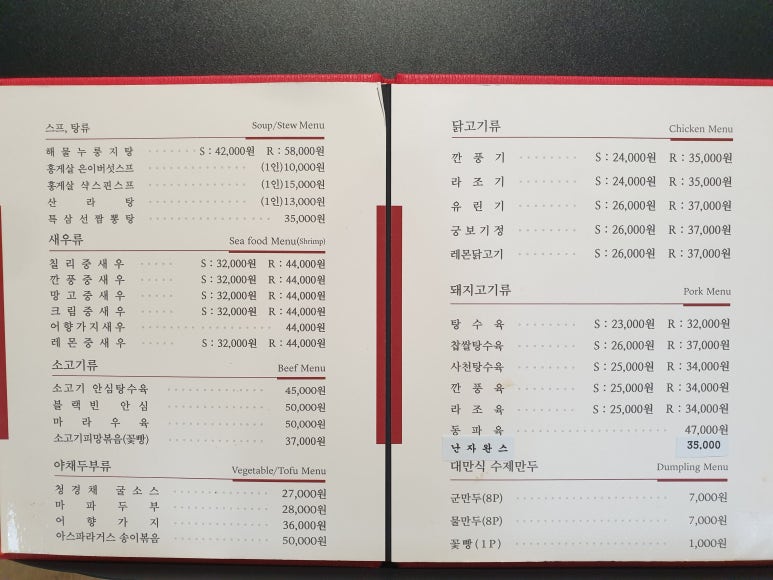 스프, 탕류 Soup/Stew Menu
해물누룽지탕 S : 42,000원 R : 58,000원
홍게살 은이버섯스프 (1인)10,000원
홍게살 샥스핀스프 (1인)15,000원
산라탕 (1인)13,000원
특삼선짬뽕탕 35,000원
새우류 Sea food Menu(Shrimp)
칠리중새우 S : 32,000원 R : 44,000원
깐풍중새우 S : 32,000원 R : 44,000원
망고중새우 S : 32,000원 R : 44,000원
크림중새우 S : 32,000원 R : 44,000원
어향가지새우 44,000원
레몬중새우 S : 32,000원 R : 44,000원
소고기류 Beef Menu
소고기 안심탕수육 45,000원
블랙빈 안심 50,000원
마라우육 50,000원
소고기피망볶음(꽃빵) 37,000원
야채두부류 Vegetable/Tofu Menu
청경채 굴소스 27,000원
마파두부 28,000원
어향가지 36,000원
아스파라거스 송이볶음 50,000원
닭고기류 Chicken Menu
깐풍기 S : 24,000원 R : 35,000원
라조기 S : 24,000원 R : 35,000원
유린기 S : 26,000원 R : 37,000원
궁보기정 S : 26,000원 R : 37,000원
레몬닭고기 S : 26,000원 R : 37,000원
돼지고기류 Pork Menu
탕수육 S : 23,000원 R : 32,000원
찹쌀탕수육 S : 26,000원 R : 37,000원
사천탕수육 S : 25,000원 R : 34,000원
깐풍육 S : 25,000원 R : 34,000원
라조육 S : 25,000원 R : 34,000원
동파육 47,000원
난자완스 35,000
대만식 수제만두 Dumpling Menu
군만두(8P) 7,000원
물만두(8P) 7,000원
꽃빵(1P) 1,000원